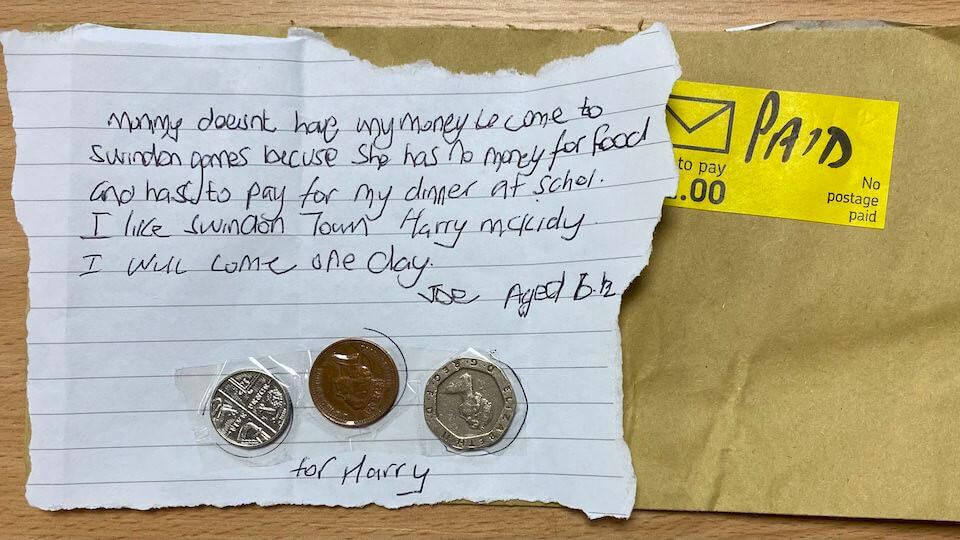 Mummy doesnt have any money to come to
Swindon games becuse she has no money for food
and hass to pay for my dinner at schol.
I like Swindon Town Harry mckidy
I will come one day.
Joe Aged 6.½
for Harry
PAID
to pay
.00
No
postage
paid
ELIZABETH II D G REG